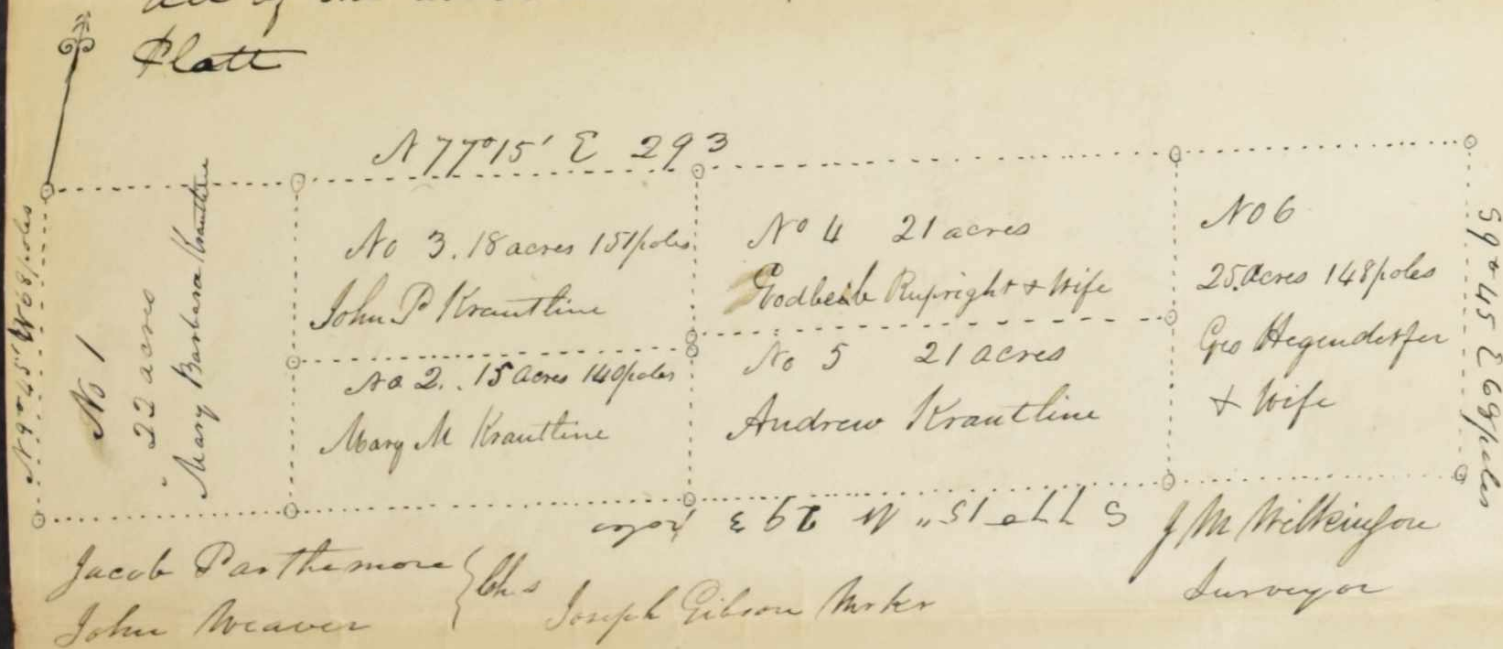 all of the
Platt
N 77° 15' E 293
N 9° 45' W 68 poles
No 1
22 acres
Mary Barbara Krautline
No 3. 18 acres 151 poles
John P Krautline
No 2. 15 acres 140 poles
Mary M Krautline
No 4 21 acres
Godleib Rupright & Wife
No 5 21 acres
Andrew Krautline
No 6
25 acres 148 poles
Geo Hegendorfer
& Wife
S 9° 45 E 68 poles
S 77° 15" W 293 poles
Jacob Parthemore
John Weaver
Chs
Joseph Gibson Mrkr
J M Wilkinson
Surveyor